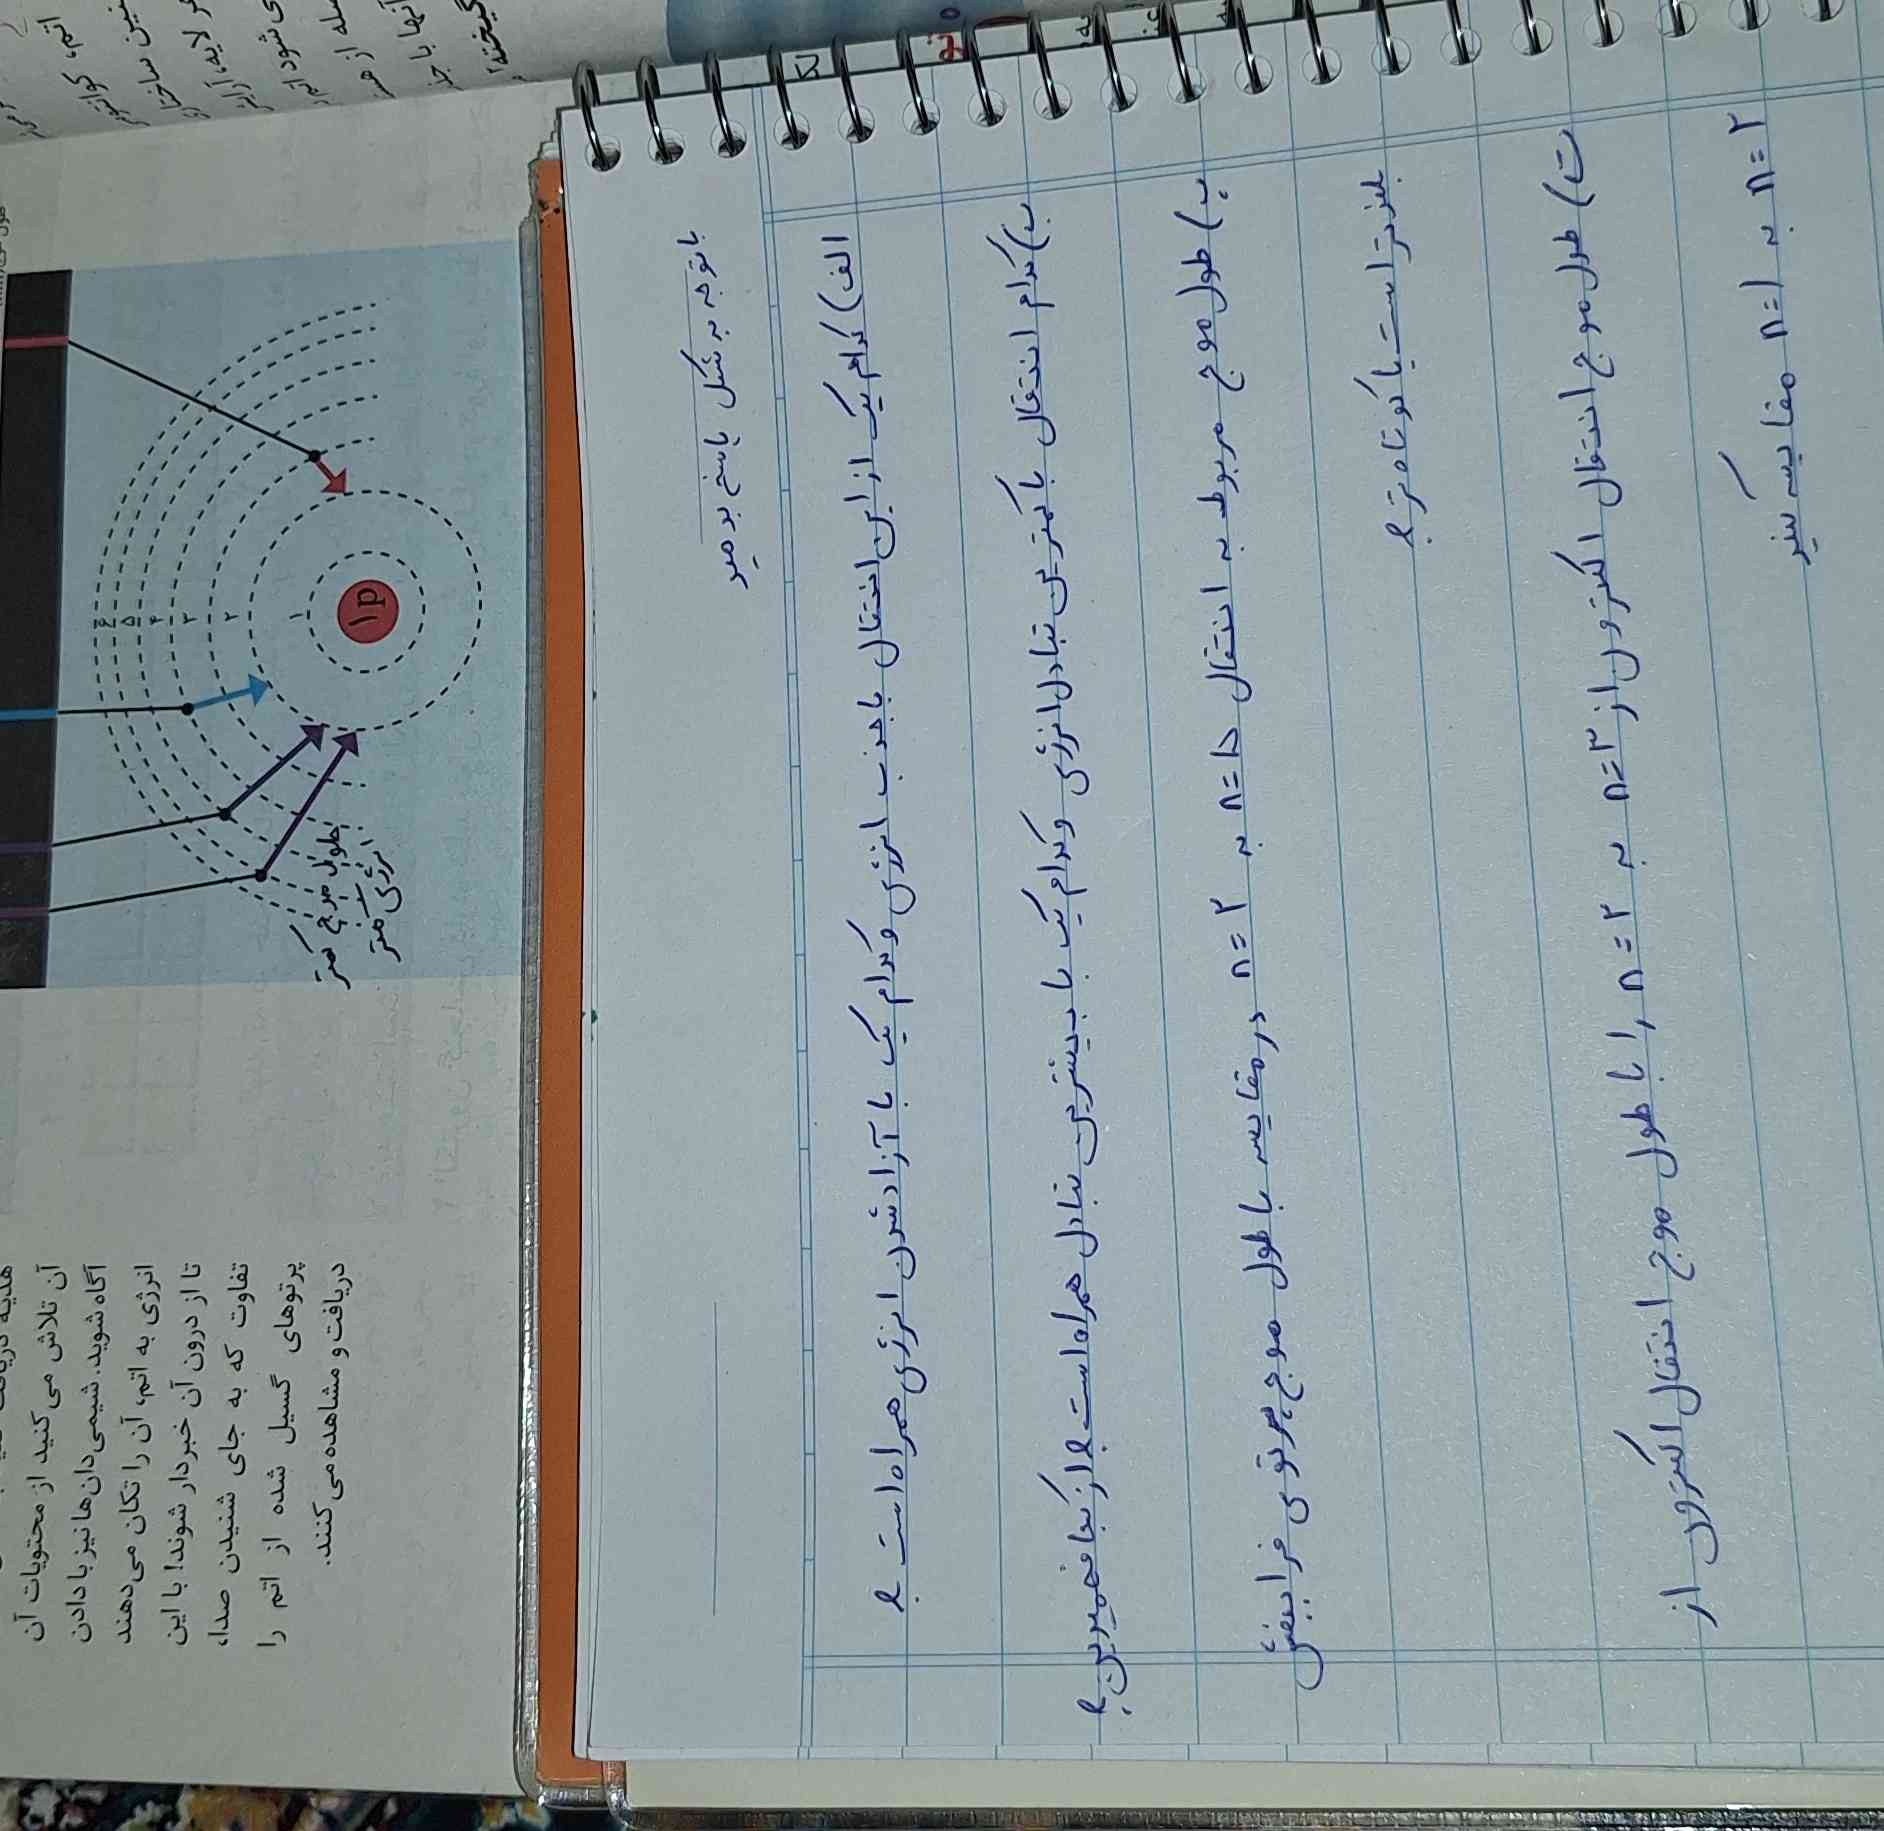 هدیه
آن تلاش می‌کنید از محتویات آن
آگاه شوید. شیمی‌دان‌ها نیز با دادن
انرژی به اتم، آن را تکان می‌دهند
تا از درون آن خبردار شوند! با این
تفاوت که به جای شنیدن صدا،
پرتوهای گسیل شده از اتم را
دریافت و مشاهده می‌کنند.
۶
۵
۴
۳
۲
۱
۱p
طول موج کمتر
انرژی کمتر
با توجه به شکل پاسخ بدهید
الف) کدام یک از این انتقال با جذب انرژی و کدام یک با آزاد شدن انرژی همراه است ؟
ب) کدام انتقال با کمترین تبادل انرژی و کدام یک با بیشترین تبادل همراه است ؟ از کجا فهمیدین؟
پ) طول موج مربوط به انتقال n=۵ به n=۲ در مقایسه با طول موج پرتوی فرابنفش
بلندتر است یا کوتاه تر ؟
ت) طول موج انتقال الکترون از n=۳ به n=۲ را با طول موج انتقال الکترون از
n=۲ به n=۱ مقایسه کنید